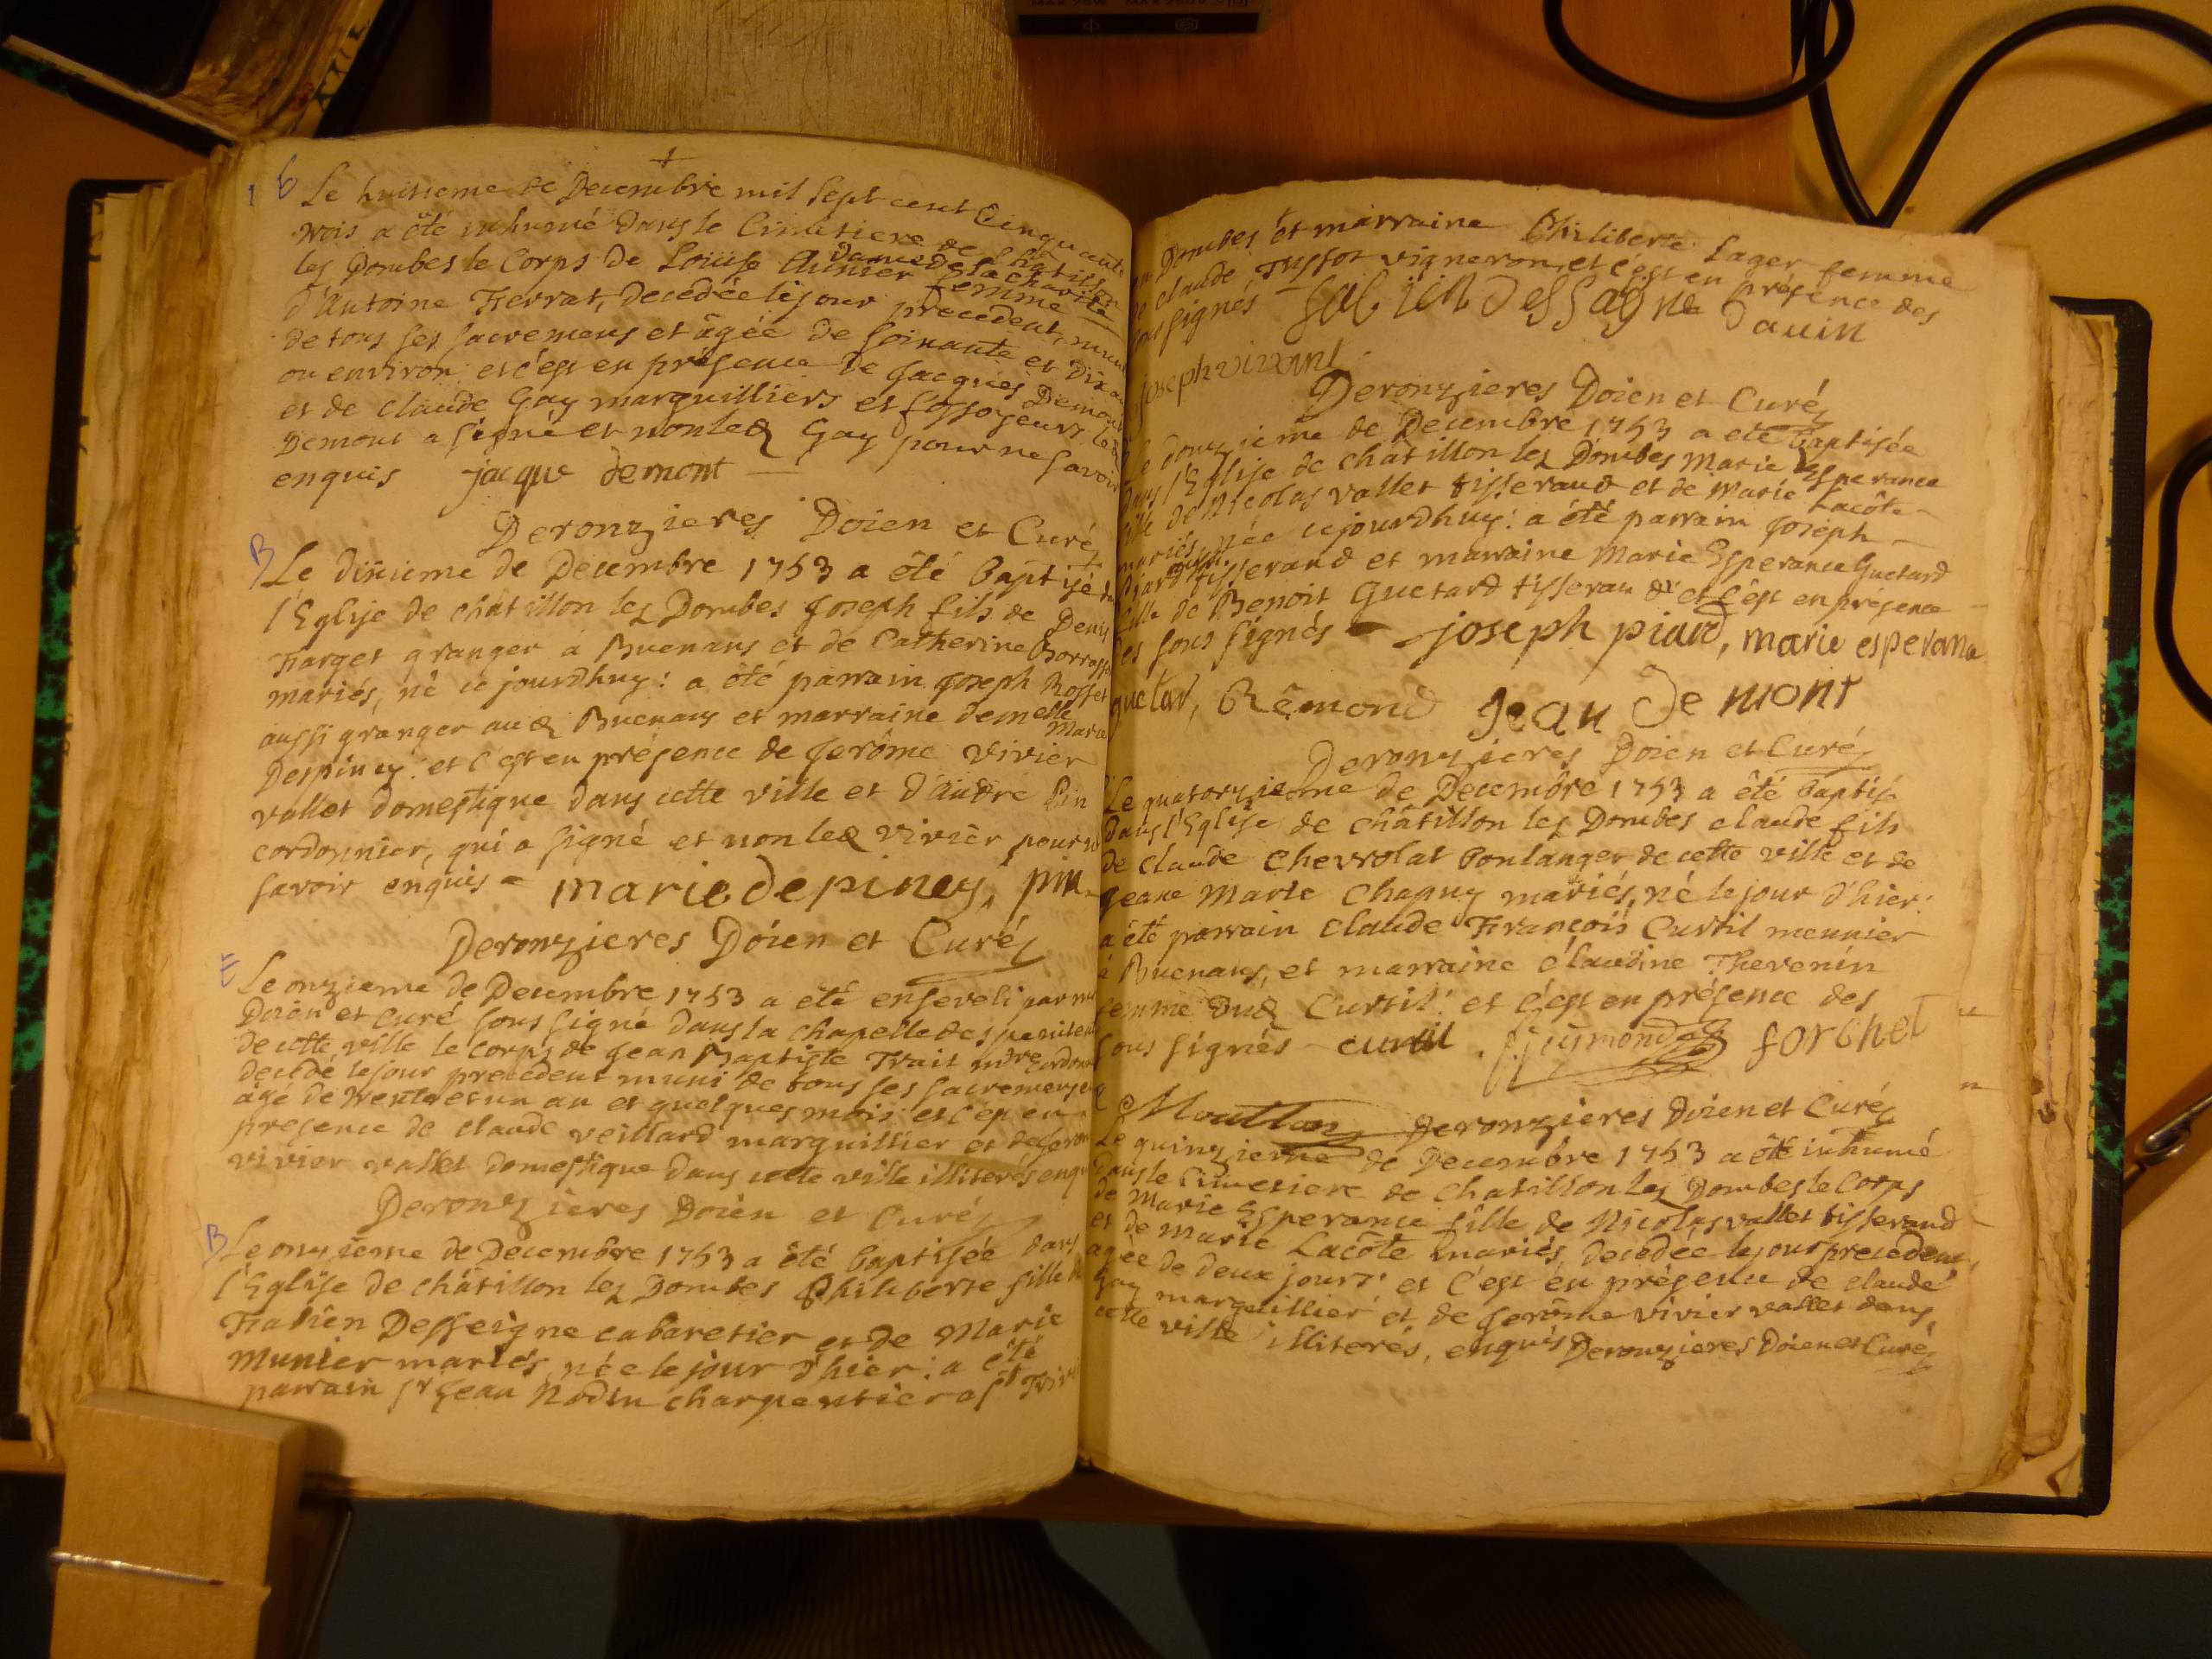 Le huitieme de Decembre mil sept cent Cinquante
trois a été inhumé dans le Cimetiere de Chatillon
les Dombes le Corps de Loüise femme
d'Antoine Ferrat, decedée le jour precedent, muni
de tous ses sacremens et âgée de soixante et dix ans
ou environ et c'est en présence de Jacques Demont
et de claude Gay marguilliers et fossoyeurs led
Demont a signé et non led Gay pour ne savoir
enquis jacque demont
Deronzieres Doien et Curé
B Le dixieme de Decembre 1753 a été Baptisé
l'Eglise de châtillon les Dombes Joseph fils de Denis
Farget granger à Buenans et de Catherine
mariés, né ce jourdhuy : a été parrain Joseph Rosset
aussi granger aud Buenans et marraine demelle Marie
Despiney : et c'est en présence de Jerôme Vivier
vallet domestique dans cette ville et d'André Pin
cordonnier, qui a signé et non led vivier pour ne
savoir enquis = marie depiney, pin
Deronzieres Doien et Curé
Le onzieme de Decembre 1753 a été enseveli par moi
Doien et Curé sous signé dans la chapelle des peniten
de cette ville le corps de Jean Baptiste Trait mtre
decédé le jour precedent muni de tous ses sacremens
âgé de trente et un an et quelques mois : et c'est en
presence de claude veillard marguillier et de Jerom
vivier vallet domestique dans cette ville illiterés enqu
Deronzieres Doien et Curé
B Le onzieme de Decembre 1753 a été Baptisée dans
l'Eglise de châtillon les Dombes Philiberte fille de
Fabien Desseigne cabaretier et de Marie
Munier mariés, née le jour d'hier : a été
parrain sr Jean Nodin charpentier a st Trivi
Dombes et marraine Philiberte Lager femme
de claude Tissot vigneron, et c'est en présence des
sous signés fabiin dessagne dauin
joseph vivant
Deronzieres Doien et Curé
Le douzieme de Decembre 1753 a eté Baptisée
dans l'Eglise de châtillon les Dombes Marie Esperance
fille de Nicolas vallet tisserand et de Marie Lacôte
mariés, née ce jourdhuy : a été parrain Joseph
Piard aussi tisserand et marraine Marie Esperance Guetard
fille de Benoit Guetard tisserand et c'est en présence
des sous signés joseph piard, marie esperana
guetar, Rêmond Jean De mont
Deronzieres Doien et Curé
Le quatorzieme de Decembre 1753 a été Baptisé
dans l'Eglise de châtillon les Dombes claude fils
de Claude Chevrolat Boulanger de cette ville et de
Jeane Marie Chagny mariés, né le jour d'hier :
a été parrain Claude François Curtil meunier
à Buenans, et marraine claudine Thevenin
femme dud Curtil : et c'est en présence des
sous signés curtil forchet
Moutton Deronzieres Doien et Curé
Le quinzieme de Decembre 1753 a été inhumé
dans le Cimetiere de Chatillon les Dombes le Corps
de Marie Esperance fille de Nicolas vallet tisserand
et de Marie Lacôte mariés, decedée le jour precedent,
agée de deux jours : et c'est en présence de claude
Gay marguillier et de Jerôme vivier vallet dans
cette ville illiterés, enquis Deronzieres Doien et Curé